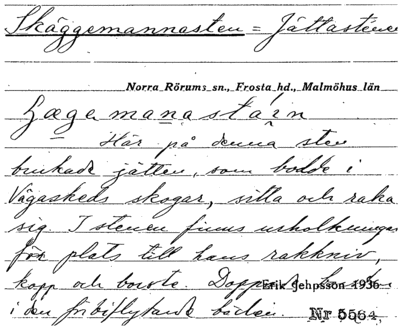 Skäggemannasten = Jättastenen
Norra Rörums sn., Frosta hd., Malmöhus län
Här på denna sten
brukade jätten, som bodde i
Vägaskeds skogar, sitta och raka
sig. I stenen finns urholkningar
för plats till hans rakkniv,
kopp och borste.
Erik Jehpsson 1936
i den förbiflytande bäcken.
Nr 5564